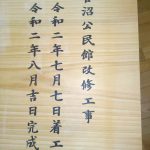 沼公民館改修工事
令和二年七月七日着工
令和二年八月吉日完成